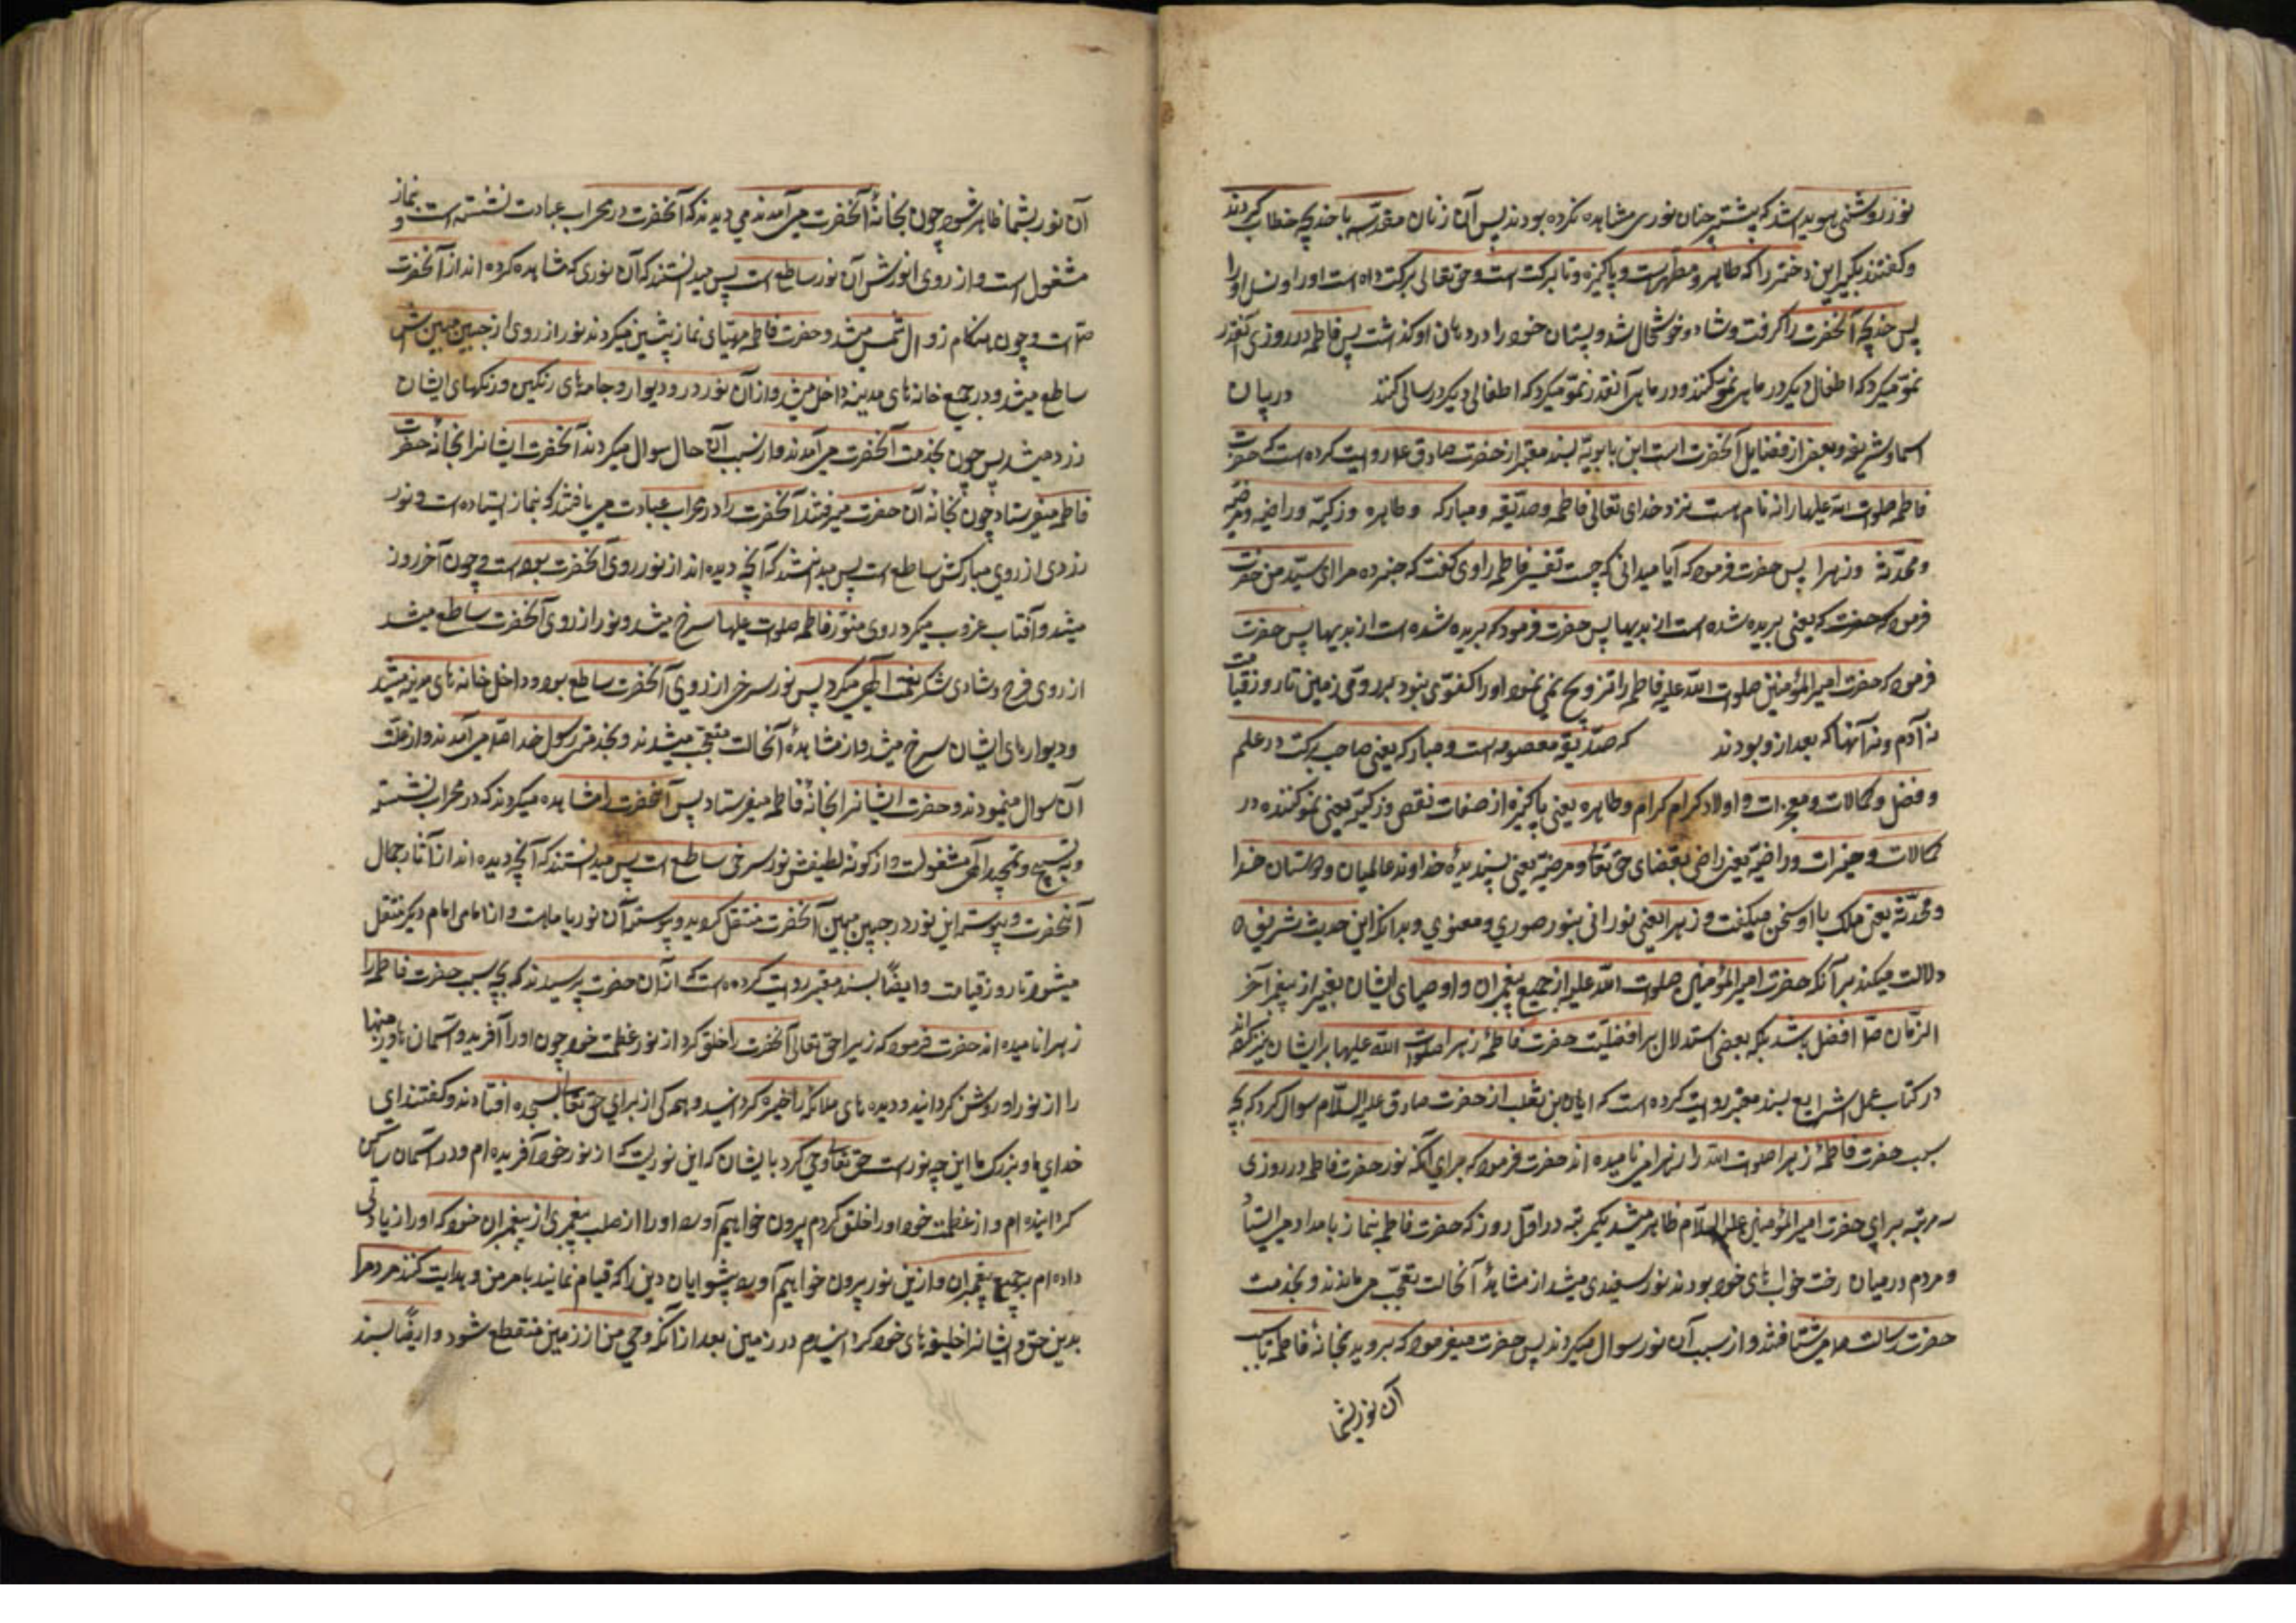 نور روشنی هویدا شد که پیشتر چنان نوری مشاهده نکرده بودند پس آن زنان مقدسه با خدیجه خطاب کردند
و گفتند بگیر این دختر را که طاهره و مطهره است و پاکیزه و با برکت است و حق تعالی برکت داده است او را و نسل او را
پس خدیجه آنحضرت را گرفت و شاد و خوشحال شد و پستان خود را در دهان او گذاشت پس فاطمه در روزی آنقدر
نمو میکرد که اطفال دیگر در ماهی نمو کنند و در ماهی آنقدر نمو میکرد که اطفال دیگر در سالی کنند در بیان
اسماء شریفه و بعضی از فضایل آنحضرت است ابن بابویه بسند معتبر از حضرت صادق ع روایت کرده است که حضرت
فاطمه صلوات الله علیها را نه نام است نزد خدای تعالی فاطمه و صدیقه و مبارکه و طاهره و زکیه و راضیه و مرضیه
و محدثه و زهرا پس حضرت فرمود که آیا میدانی که چیست تفسیر فاطمه راوی گفت که خبر ده مرا ای سید من حضرت
فرمود که حضرت که یعنی بریده شده است از بدیها پس حضرت فرمود که بریده شده است از بدیها پس حضرت
فرمود که حضرت امیر المؤمنین صلوات الله علیه فاطمه را تزویج نمی نمود او را کفوی نبود بر روی زمین تا روز قیامت
نه آدم و نه آنها که بعد از او بودند که صدیقه معصومه است و مبارکه یعنی صاحب برکت در علم
و فضل و کمالات و معجزات و اولاد کرام کرام و طاهره یعنی پاکیزه از صفات نقص و زکیه یعنی نمو کننده در
کمالات و خیرات و راضیه یعنی راضی بقضای حق تعالی و مرضیه یعنی پسندیدهٔ خداوند عالمیان و دوستان خدا
و محدثه یعنی ملک با او سخن میگفت و زهرا یعنی نورانی بنور صوری و معنوی و بدانکه این حدیث شریف
دلالت میکند بر آنکه حضرت امیر المؤمنین صلوات الله علیه از جمیع پیغمبران و اوصیای ایشان بغیر از پیغمبر آخر
الزمان ص افضل باشد بلکه بعضی استدلال بر افضلیت حضرت فاطمهٔ زهرا صلوات الله علیها بر ایشان نیز کرده اند
در کتاب علل الشرایع بسند معتبر روایت کرده است که ابان بن تغلب از حضرت صادق علیه السلام سوال کرد که بچه
سبب حضرت فاطمهٔ زهرا صلوات الله را زهرا نامیده اند حضرت فرمود که برای آنکه نور حضرت فاطمه در روزی
سه مرتبه برای حضرت امیر المؤمنین علیه السلام ظاهر میشد یکمرتبه در اول روز که حضرت فاطمه بنماز بامداد می ایستاد
و مردم در میان رخت خواب های خود بودند نور سفیدی میشد از مشاهدهٔ آنحالت تعجب می ماندند و بخدمت
حضرت رسالت ص می شتافتند و از سبب آن نور سوال میکردند پس حضرت میفرمود که بروید بخانهٔ فاطمه تا سبب
آن نور بشما
آن نور بشما ظاهر شود چون بخانهٔ آنحضرت می آمدند می دیدند که آنحضرت در محراب عبادت نشسته است و بنماز
مشغول است و از روی انورش آن نور ساطع است پس میدانستند که آن نوری که مشاهده کرده اند از آنحضرت
است و چون هنگام زوال شمس میشد و حضرت فاطمه مهیای نماز پیشین میکردند نور از روی از جبین مبینش
ساطع میشد و در جمیع خانه های مدینه داخل میشد و از آن نور در و دیوار و جامه های رنگین و رنگهای ایشان
زرد میشد پس چون بخدمت آنحضرت می آمدند و از سبب آن حال سوال میکردند آنحضرت ایشانرا بخانهٔ حضرت
فاطمه میفرستاد چون بخانهٔ آن حضرت میرفتند آنحضرت را در محراب عبادت می یافتند که بنماز ایستاده است و نور
زردی از روی مبارکش ساطع است پس میدانستند که آنچه دیده اند از نور روی آنحضرت بوده است و چون آخر روز
میشد و آفتاب غروب میکرد روی منور فاطمه صلوات علیها سرخ میشد و نور از روی آنحضرت ساطع میشد
از روی فرح و شادی شکر نعمت الهی میکرد پس نور سرخی از روی آنحضرت ساطع بود و داخل خانه های مدینه میشد
و دیوارهای ایشان سرخ میشد و از مشاهدهٔ آنحالت متعجب میشدند و بخدمت رسول خدا ص می آمدند و از علت
آن سوال مینمودند و حضرت ایشانرا بخانهٔ فاطمه میفرستاد پس آنحضرت را مشاهده میکردند که در محراب نشسته
و بتسبیح و تمجید الهی مشغولست و از گونه لطیفش نور سرخی ساطع است پس میدانستند که آنچه دیده اند از آثار جمال
آنحضرت و پیوسته این نور در جبین مبین آنحضرت منتقل گردید و پیوسته آن نور با ماست و از امامی امام دیگر منتقل
میشود تا روز قیامت و ایضاً بسند معتبر روایت کرده است که از آن حضرت پرسیدند که بچه سبب حضرت فاطمه را
زهرا نامیده اند حضرت فرمود که زیرا حق تعالی آنحضرت را خلق کرد از نور عظمت خود چون او را آفرید و آسمان ها و زمینها
را از نور او روشن گردانید و دیده های ملائکه را خیره گردانید و همگی از برای حق تعالی بسجده افتادند و گفتند ای
خدای ما و بزرگ ما این چه نور است حق تعالی وحی کرد بایشان که این نوریست که از نور خود آفریده ام و در آسمان ساکن
گردانیده ام و از عظمت خود او را خلق کردم بیرون خواهیم آورد او را از صلب پیغمبری از پیغمبران خود که او را زیادتی
داده ام بر جمیع پیغمبران و ازین نور بیرون خواهیم آورد پیشوایان دین را که قیام نمایند بامر من و هدایت کنند مردم را
بدین حق و ایشانرا خلیفه های خود گردانیدم در زمین بعد از آنکه وحی من از زمین منقطع شود و ایضاً بسند